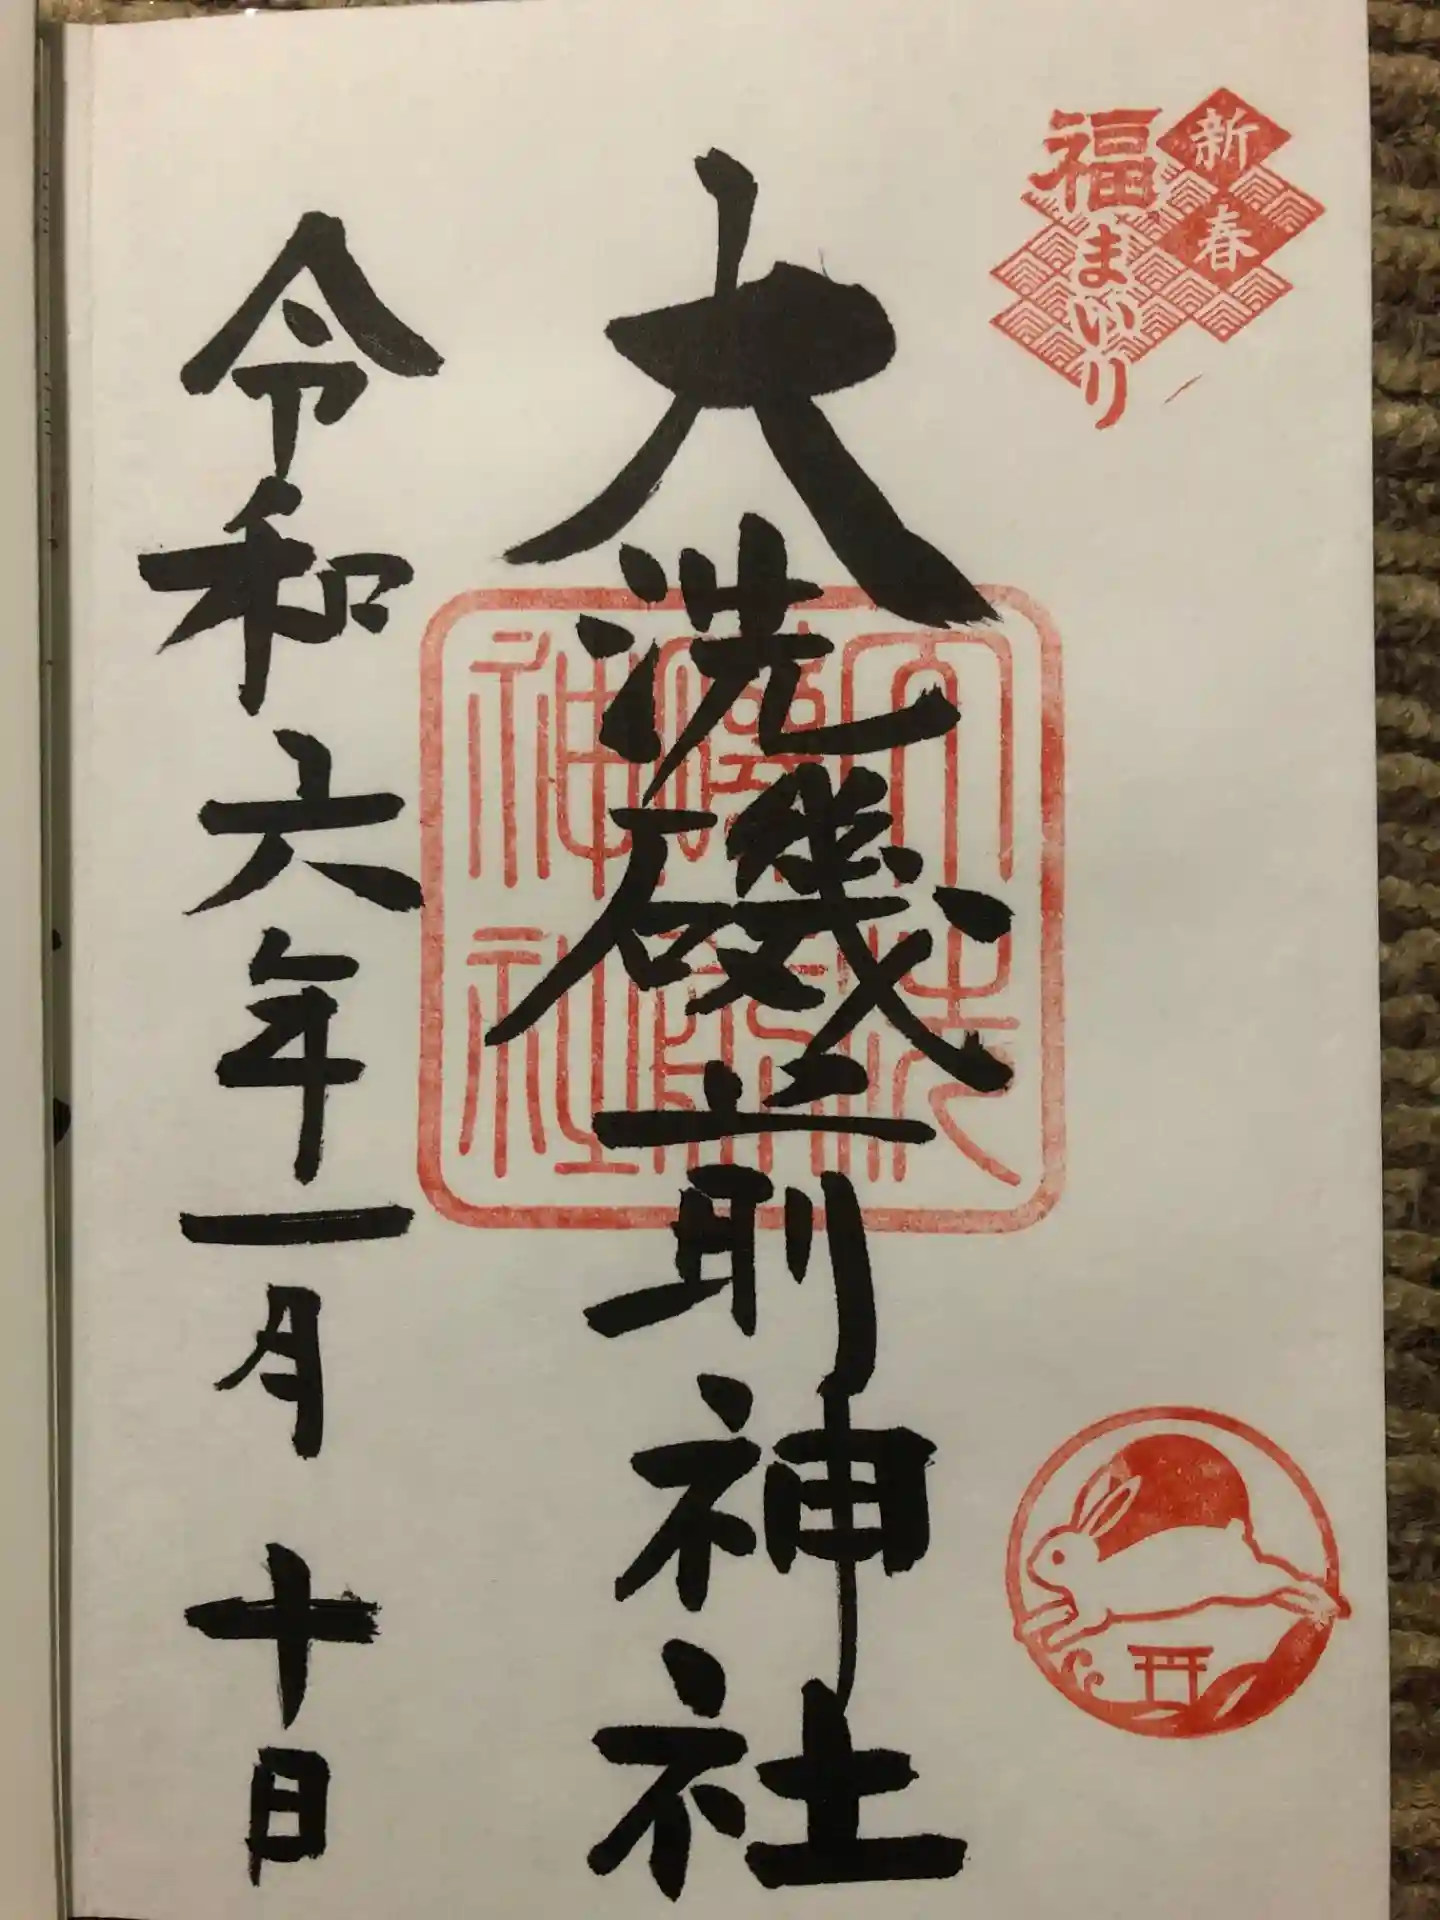 新春
福まいり
大洗磯前神社
大洗磯前神社
令和六年一月十日